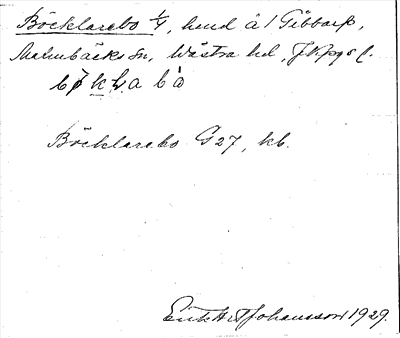 Böcklarebo 1/4, hemd å/ Gibbarp,
Malmbäcks sn, Västra hd, Jkpgs l.
Böcklarebo G27, kb.
Erik H Johansson 1929.